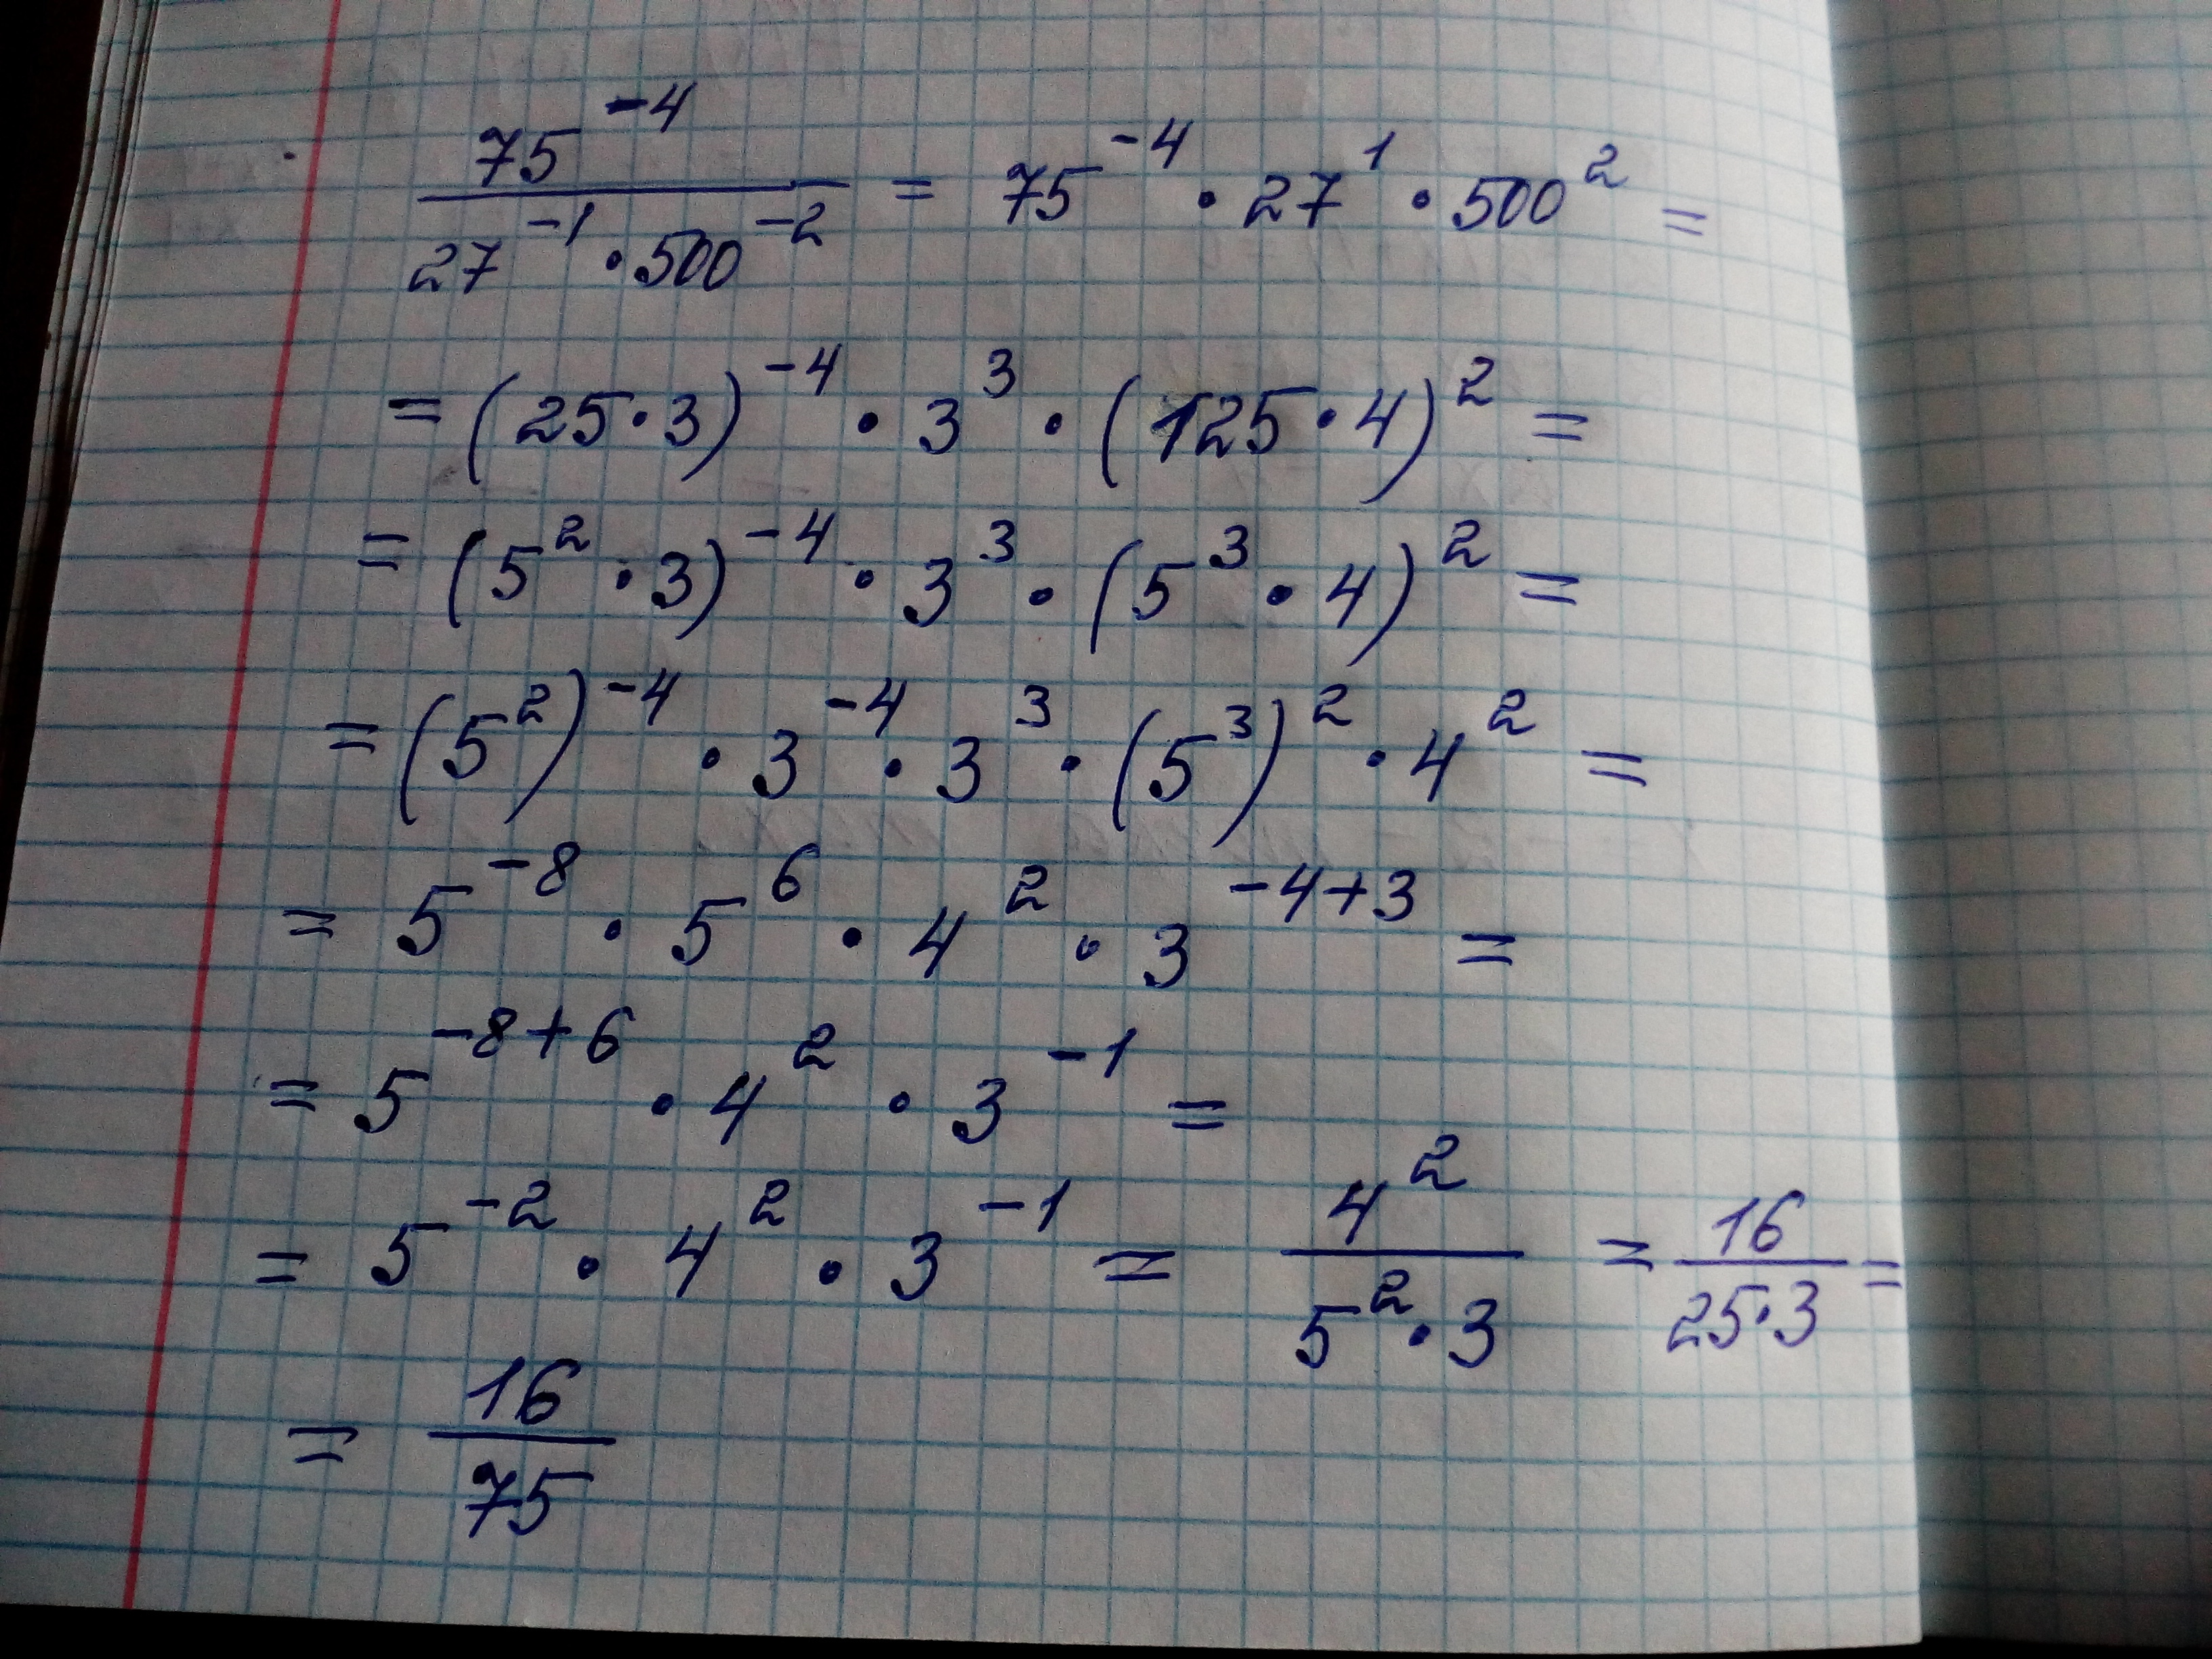 75^-4 / (27^-1 · 500^-2) = 75^-4 · 27^1 · 500^2 =
= (25·3)^-4 · 3^3 · (125·4)^2 =
= (5^2 · 3)^-4 · 3^3 · (5^3 · 4)^2 =
= (5^2)^-4 · 3^-4 · 3^3 · (5^3)^2 · 4^2 =
= 5^-8 · 5^6 · 4^2 · 3^-4+3 =
= 5^-8+6 · 4^2 · 3^-1 =
= 5^-2 · 4^2 · 3^-1 = 4^2 / (5^2 · 3) = 16 / (25·3) =
= 16 / 75